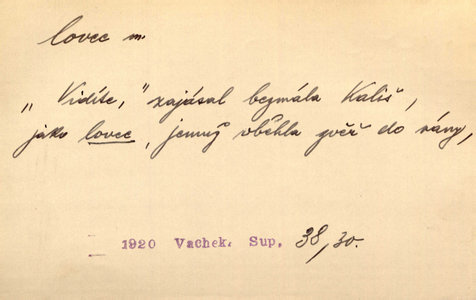 lovec m.
„Vidíte,” zajásal bezmála Kališ,
jako lovec, jemuž vběhla zvěř do rány,
1920 Vachek, Sup. 38,30.